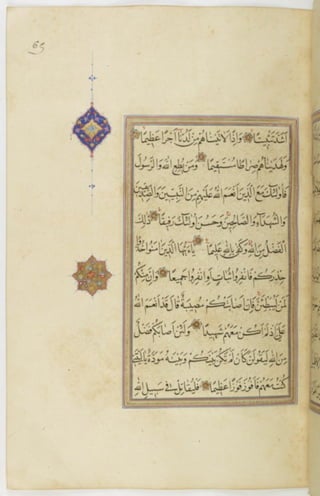 65
أشد تثبيتا وإذا لآتيناهم من لدنا أجرا عظيما
ولهديناهم صراطا مستقيما ومن يطع الله والرسول
فأولئك مع الذين أنعم الله عليهم من النبيين والصديقين
والشهداء والصالحين وحسن أولئك رفيقا ذلك
الفضل من الله وكفى بالله عليما يا أيها الذين آمنوا خذوا
حذركم فانفروا ثبات أو انفروا جميعا وإن منكم
لمن ليبطئن فإن أصابتكم مصيبة قال قد أنعم الله
علي إذ لم أكن معهم شهيدا ولئن أصابكم فضل
من الله ليقولن كأن لم تكن بينكم وبينه مودة يا ليتني
كنت معهم فأفوز فوزا عظيما فليقاتل في سبيل الله